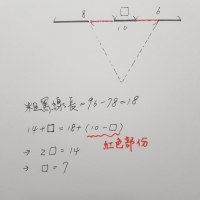 □
8 6
10
粗黑線長=96-78=18
14+□=18+(10-□)
紅色部份
⇒ 2□=14
⇒ □=7